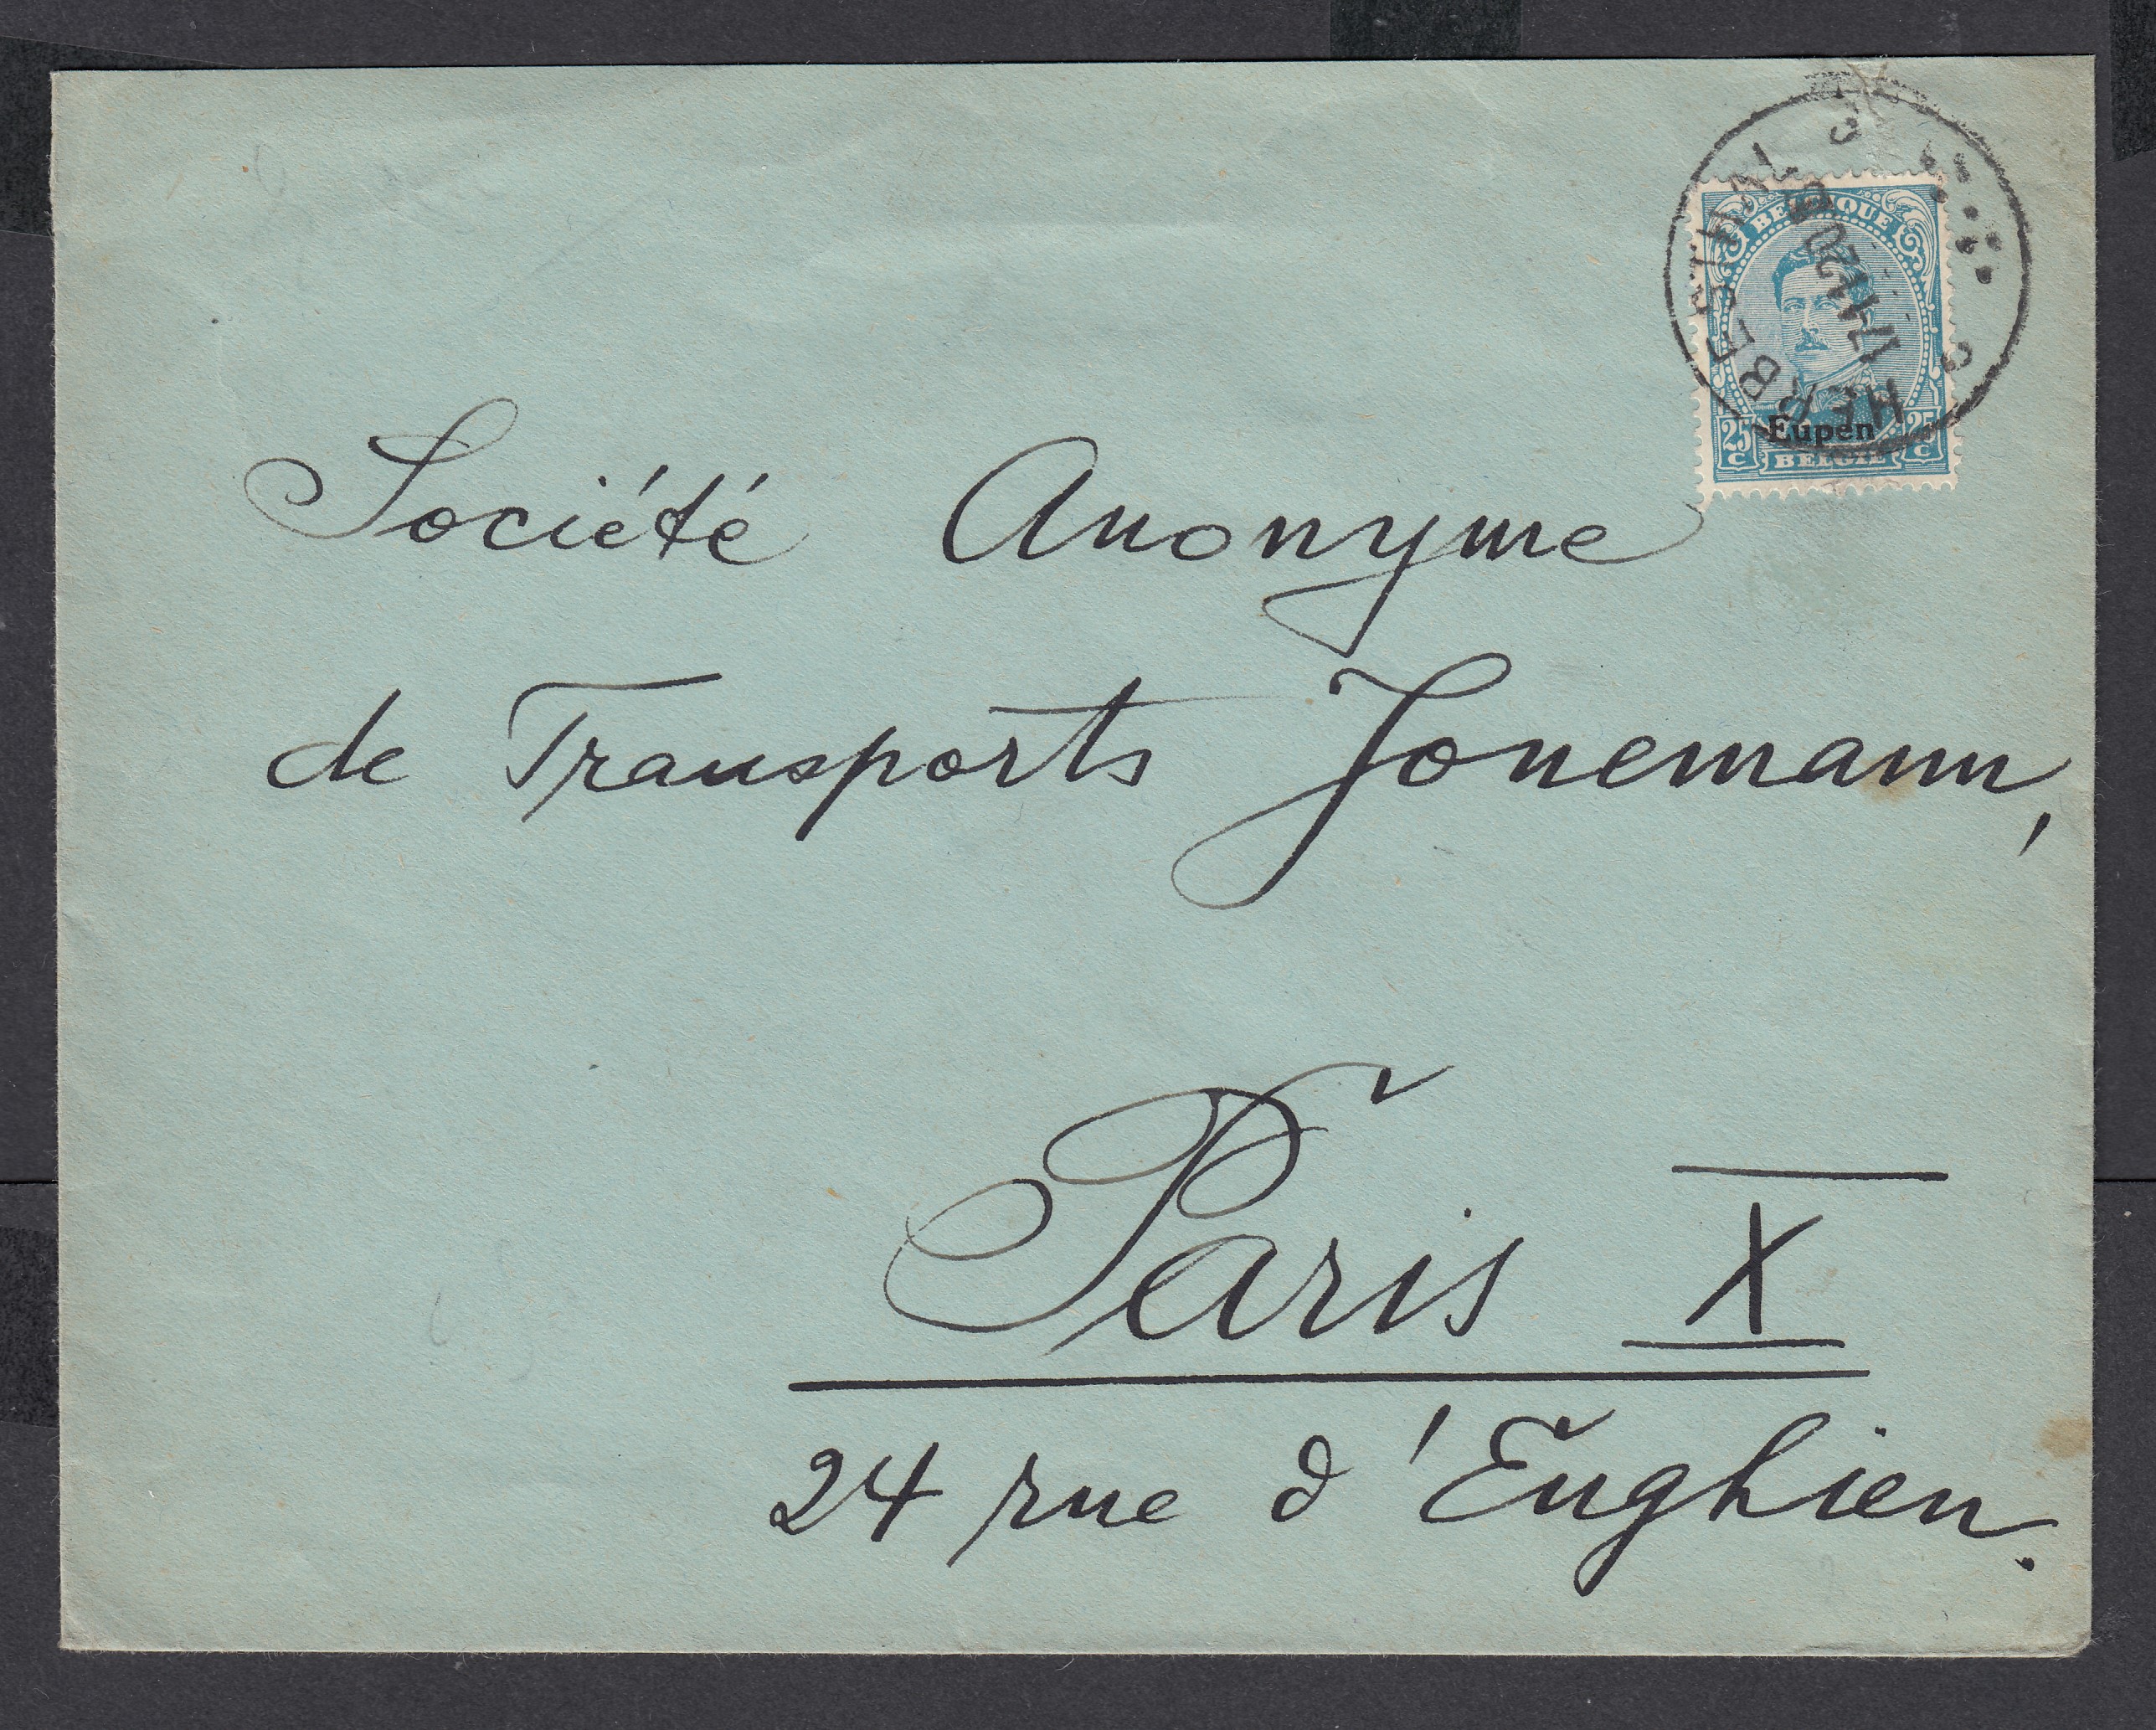 BELGIQUE
Eupen
25 C BELGIË 25 C
HERBESTHAL
Société Anonyme
de Transports Jonemann,
Paris X
24 rue d'Enghien.